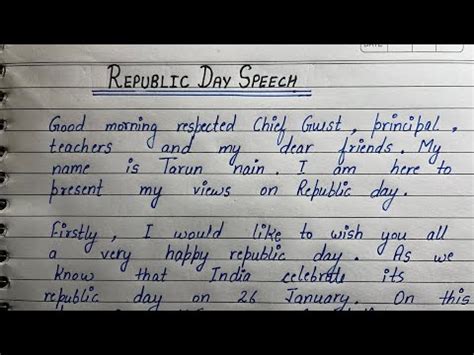 DATE
REPUBLIC DAY SPEECH
Good morning respected Chief Guest, principal,
teachers and my dear friends. My
name is Tarun nain. I am here to
present my views on Republic day.
Firstly, I would like to wish you all
a very happy republic day. As we
know that India celebrate its
republic day on 26 January. On this